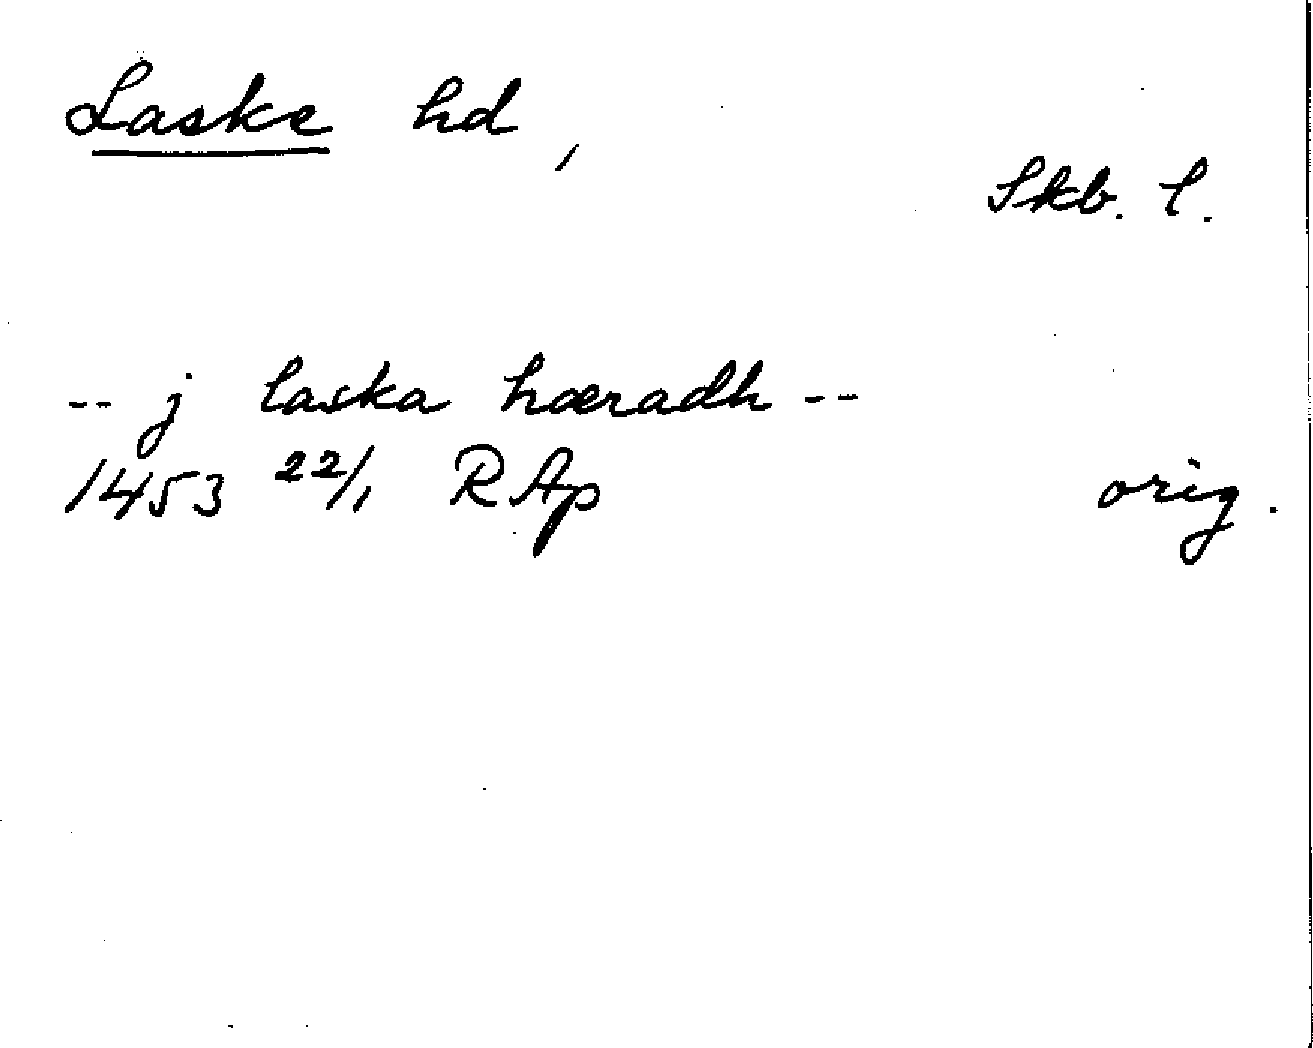 Laske hd,
Skb. l.
-- j laska hæradh --
1453 22/1 RAp orig.